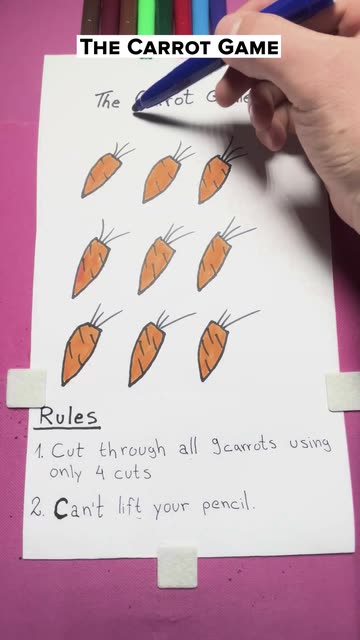 THE CARROT GAME
The Carrot Game
Rules
1. Cut through all 9 carrots using
only 4 cuts
2. Can't lift your pencil.